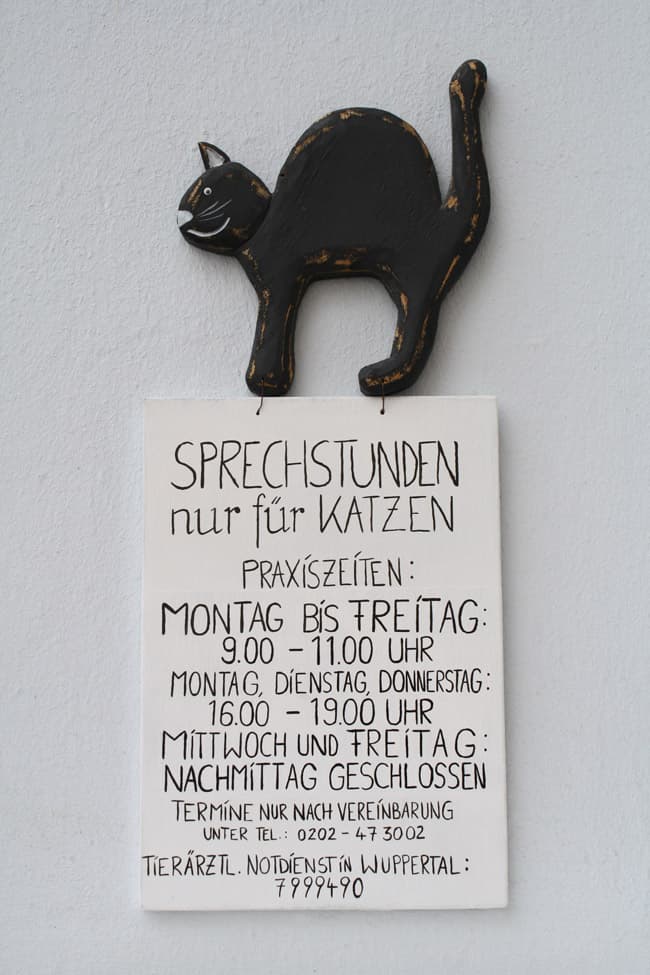 SPRECHSTUNDEN
nur für KATZEN
PRAXISZEITEN:
MONTAG BIS FREITAG:
9.00 - 11.00 UHR
MONTAG, DIENSTAG, DONNERSTAG:
16.00 - 19.00 UHR
MITTWOCH UND FREITAG:
NACHMITTAG GESCHLOSSEN
TERMINE NUR NACH VEREINBARUNG
UNTER TEL.: 0202 - 473002
TIERÄRZTL. NOTDIENST IN WUPPERTAL:
7999490